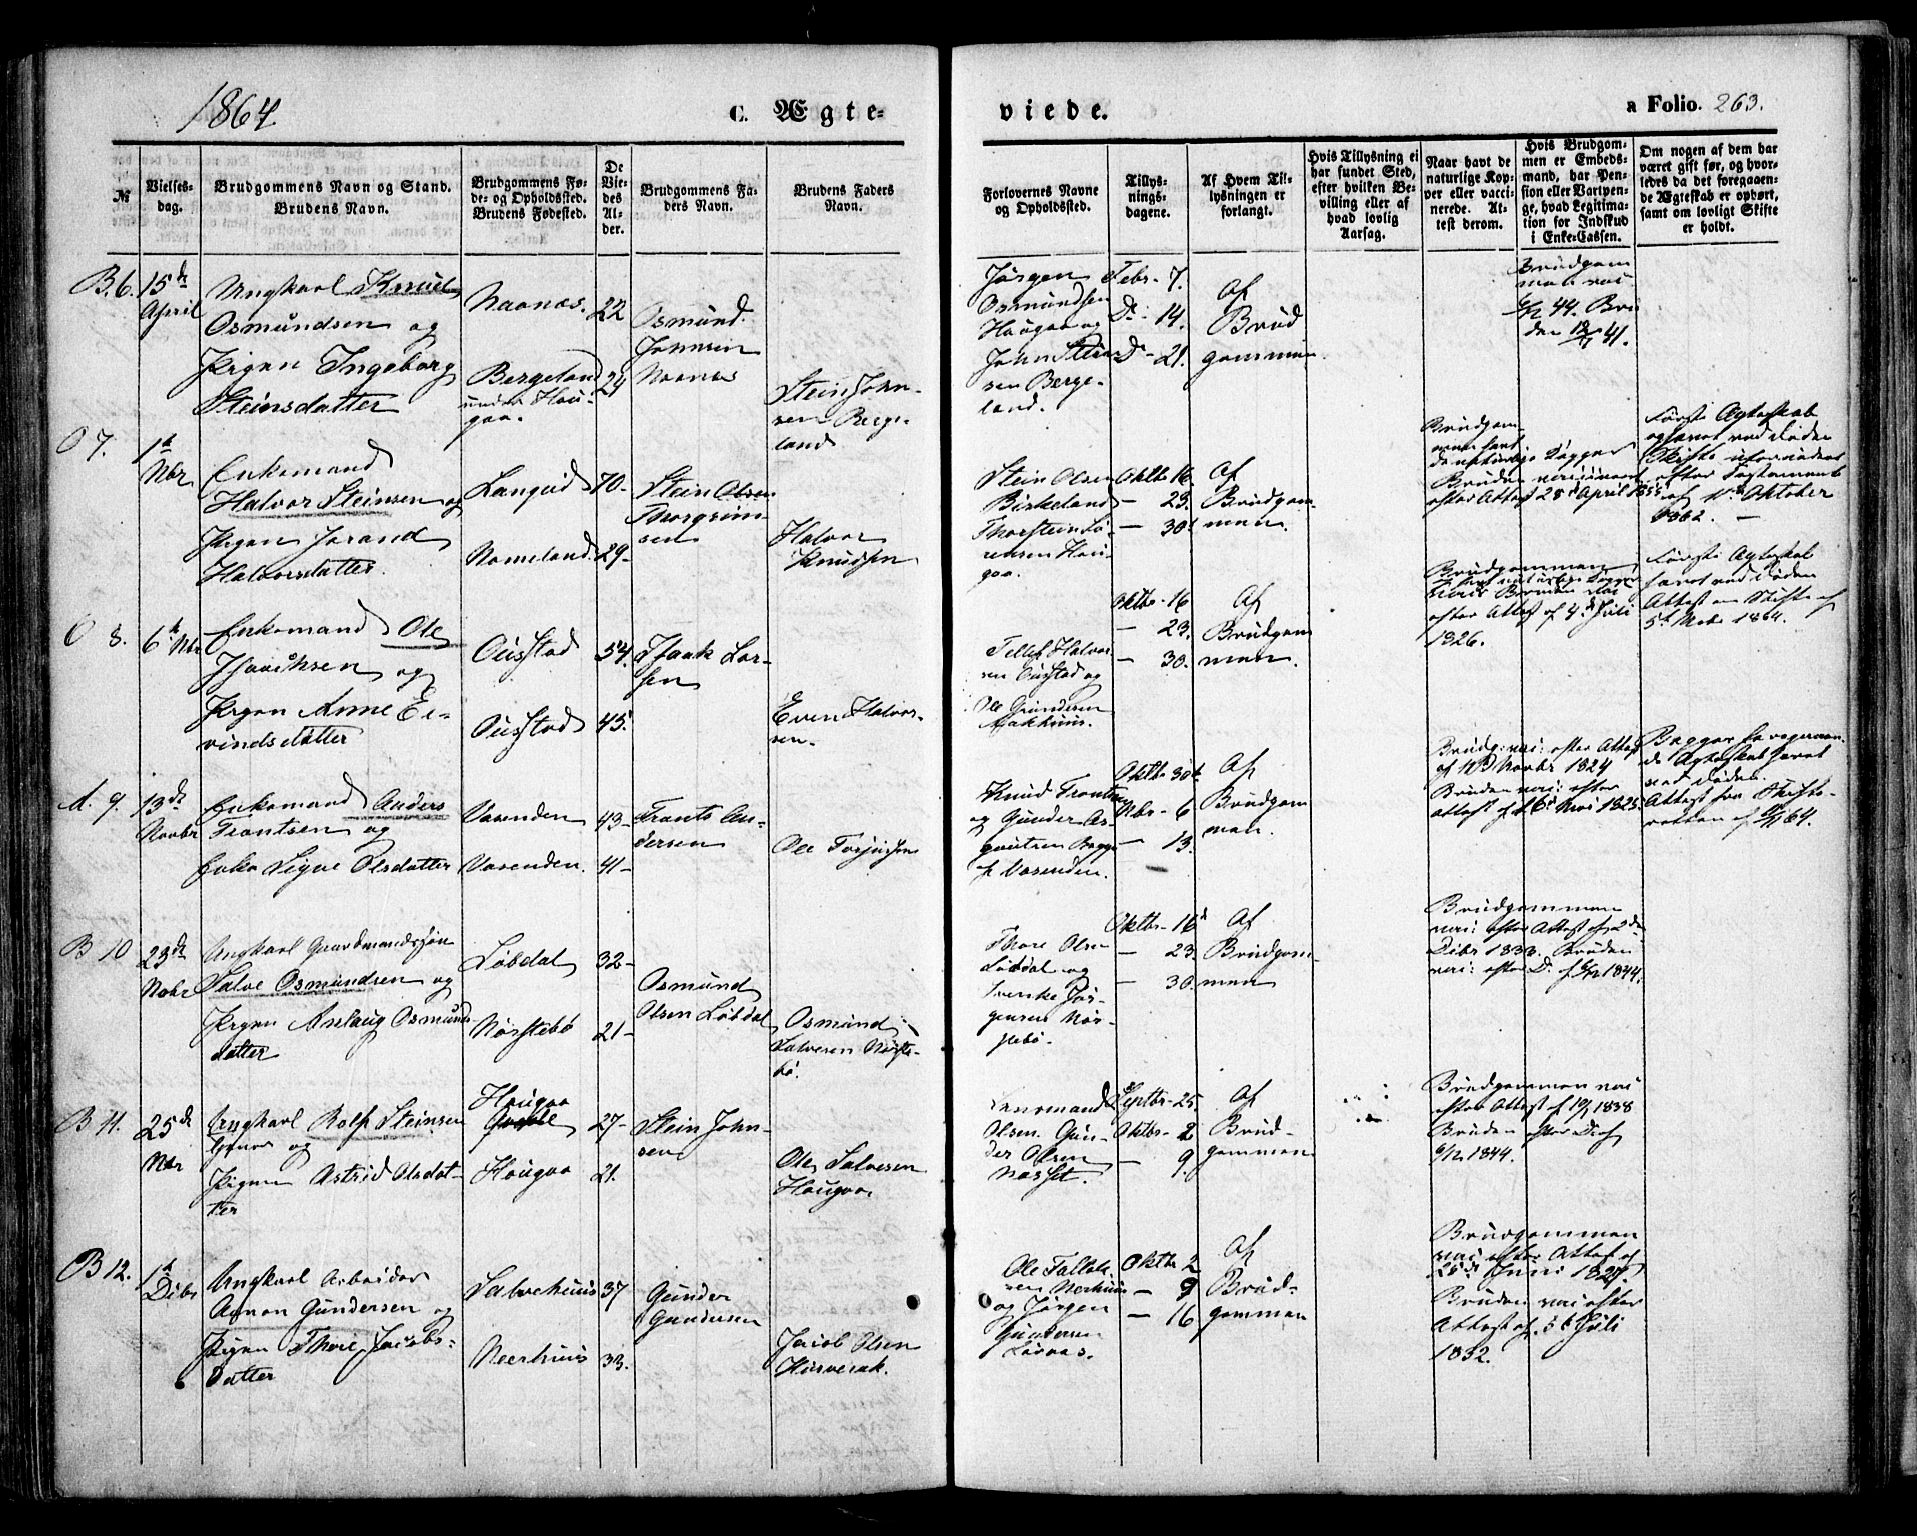 1864
C. Ægte-
viede.
a Folio. 263.
№
Vielses-
dag.
Brudgommens Navn og Stand.
Brudens Navn.
Brudgommens Fø-
de- og Opholdssted.
Brudens Fødested.
De
Vie-
des
Al-
der.
Brudgommens Fa-
ders Navn.
Brudens Faders
Navn.
Forlovernes Navne
og Opholdssted.
Tillys-
nings-
dagene.
Af Hvem Til-
lysningen er
forlangt.
Hvis Tillysning ei
har fundet Sted,
efter hvilken Be-
villing eller af
hvad lovlig
Aarsag.
Naar havt de
naturlige Kop-
per eller vacci-
nerede. At-
test derom.
Hvis Brudgom-
men er Embeds-
mand, har Pen-
sion eller Vartpen-
ge, hvad Legitima-
tion for Indskud
i Enke-Cassen.
Om nogen af dem har
været gift før, og hvor-
ledes da det foregaaen-
de Ægteskab er ophørt,
samt om lovligt Skifte
er holdt.
B. 6.
15de
April
Ungkarl Knud
Osmundsen og
Pigen Ingeborg
Steinsdatter
Naanæs.
Bergeland
under Hou-
gaa.
22
24
Osmund
Johnsen
Naanæs
Stein John-
sen Berge-
land
Jørgen
Osmundsen
Hougaa og
John Stein-
sen Berge-
land.
Febr - 7.
D. - 14.
D. - 21.
af
Brud
gommen
Brudgom
44. Bru
den
41.
O 7.
1te
Nbr
Enkemand
Halvor Steinsen og
Pigen Jorand
Halvorsdatter
Langeid
Nomeland
70 -
29 -
Stein Olsen
Thorgrim-
sen
Halvor
Knudsen
Stein Olsen
Birkeland
Thorstein
Hou-
gaa.
Oktbr 16
- 23.
- 30.
af
Brudgom-
men.
Brudgom-
men havt
de naturlige Kopper
Bruden
efter Attest 25 April
Første Ægteskab
ved Døden
Skifte
efter Testament
af Oktober
1862. -
O 8.
6te Nbr
Enkemand Ole
Isaachsen og
Pigen Anne Ei-
vindsdatter
Ousstad
Ousstad
54.
45.
Isaak Lar-
sen
Even Halvor-
sen.
Tellef Halvor
sen Ousstad og
Ole Gundersen
Oktbr - 16
- 23.
- 30.
Af
Brudgom
men.
Brudgommen
havt naturlige Kopper
efter Attest af 4de Juli
1826.
Første Ægteskab
hævet ved Døden
Attest om Skifte af
5te Nobr 1864.
A. 9.
13de
Novbr
Enkemand Anders
Frantsen og
Enke Signe Olsdatter
Vasenden
Vasenden.
43 -
41 -
Frants An-
dersen
Ole Torjussen
Knud Frantsen
og Gunder As-
Begge
af Vasenden.
Oktbr 30te
Nbr - 6
- 13.
af
Brudgom
men.
Brudg: vac: efter Attest
af Novbr 1824
Bruden vac: efter
Attest af 1825.
Begges foregaaen-
de Ægteskab hævet
ved Døden.
Attest fra Skifte-
retten af 64.
B 10
23de
Nobr
Ungkarl Gaardmandssøn
Salve Osmundsen og
Pigen Anlaug Osmunds-
datter
Løbdal
Nørstebø
32 -
21 -
Osmund
Olsen Løbdal
Osmund
Salvesen Nørste-
bø.
Thore Olsen
Løbdal og
Jør-
gensen Nør-
stebø.
Oktbr - 16d
- 23.
- 30.
af
Brudgom-
men
Brudgommen
vac: efter Attest af 2de
Dibr 1833. Bruden
vac: efter D. af 1844.
B 11.
25de
Nbr
Ungkarl Rolf Steinsen
og
Pigen Astrid Olsdat-
ter
Hougaa
Hougaa
27 -
21.
Stein John-
sen
Ole Salvesen
Hougaa
Lensmand
Olsen. Gun-
der Olsen
Næsset.
Septbr - 25.
Oktbr - 2
- 9.
af
Brud-
gommen
Brudgommen vac:
efter Attest af 1838
Bruden efter D. af
1844.
B 12.
1te
Dibr
Ungkarl Arbeider
Aanon Gundersen og
Pigen Thore Jacobs-
datter
Salvehuus
Neerhuus
37
33.
Gunder
Gundersen
Jacob Olsen
Ole Tallak-
sen Nerhuus
og Jørgen
Gundersen
Oktbr - 2
- 9
- 16
af
Brud-
gommen
Brudgommen
vac: efter Attest af
25de Juni 1827.
Bruden vac: efter
Attest af 5te Juli
1832.